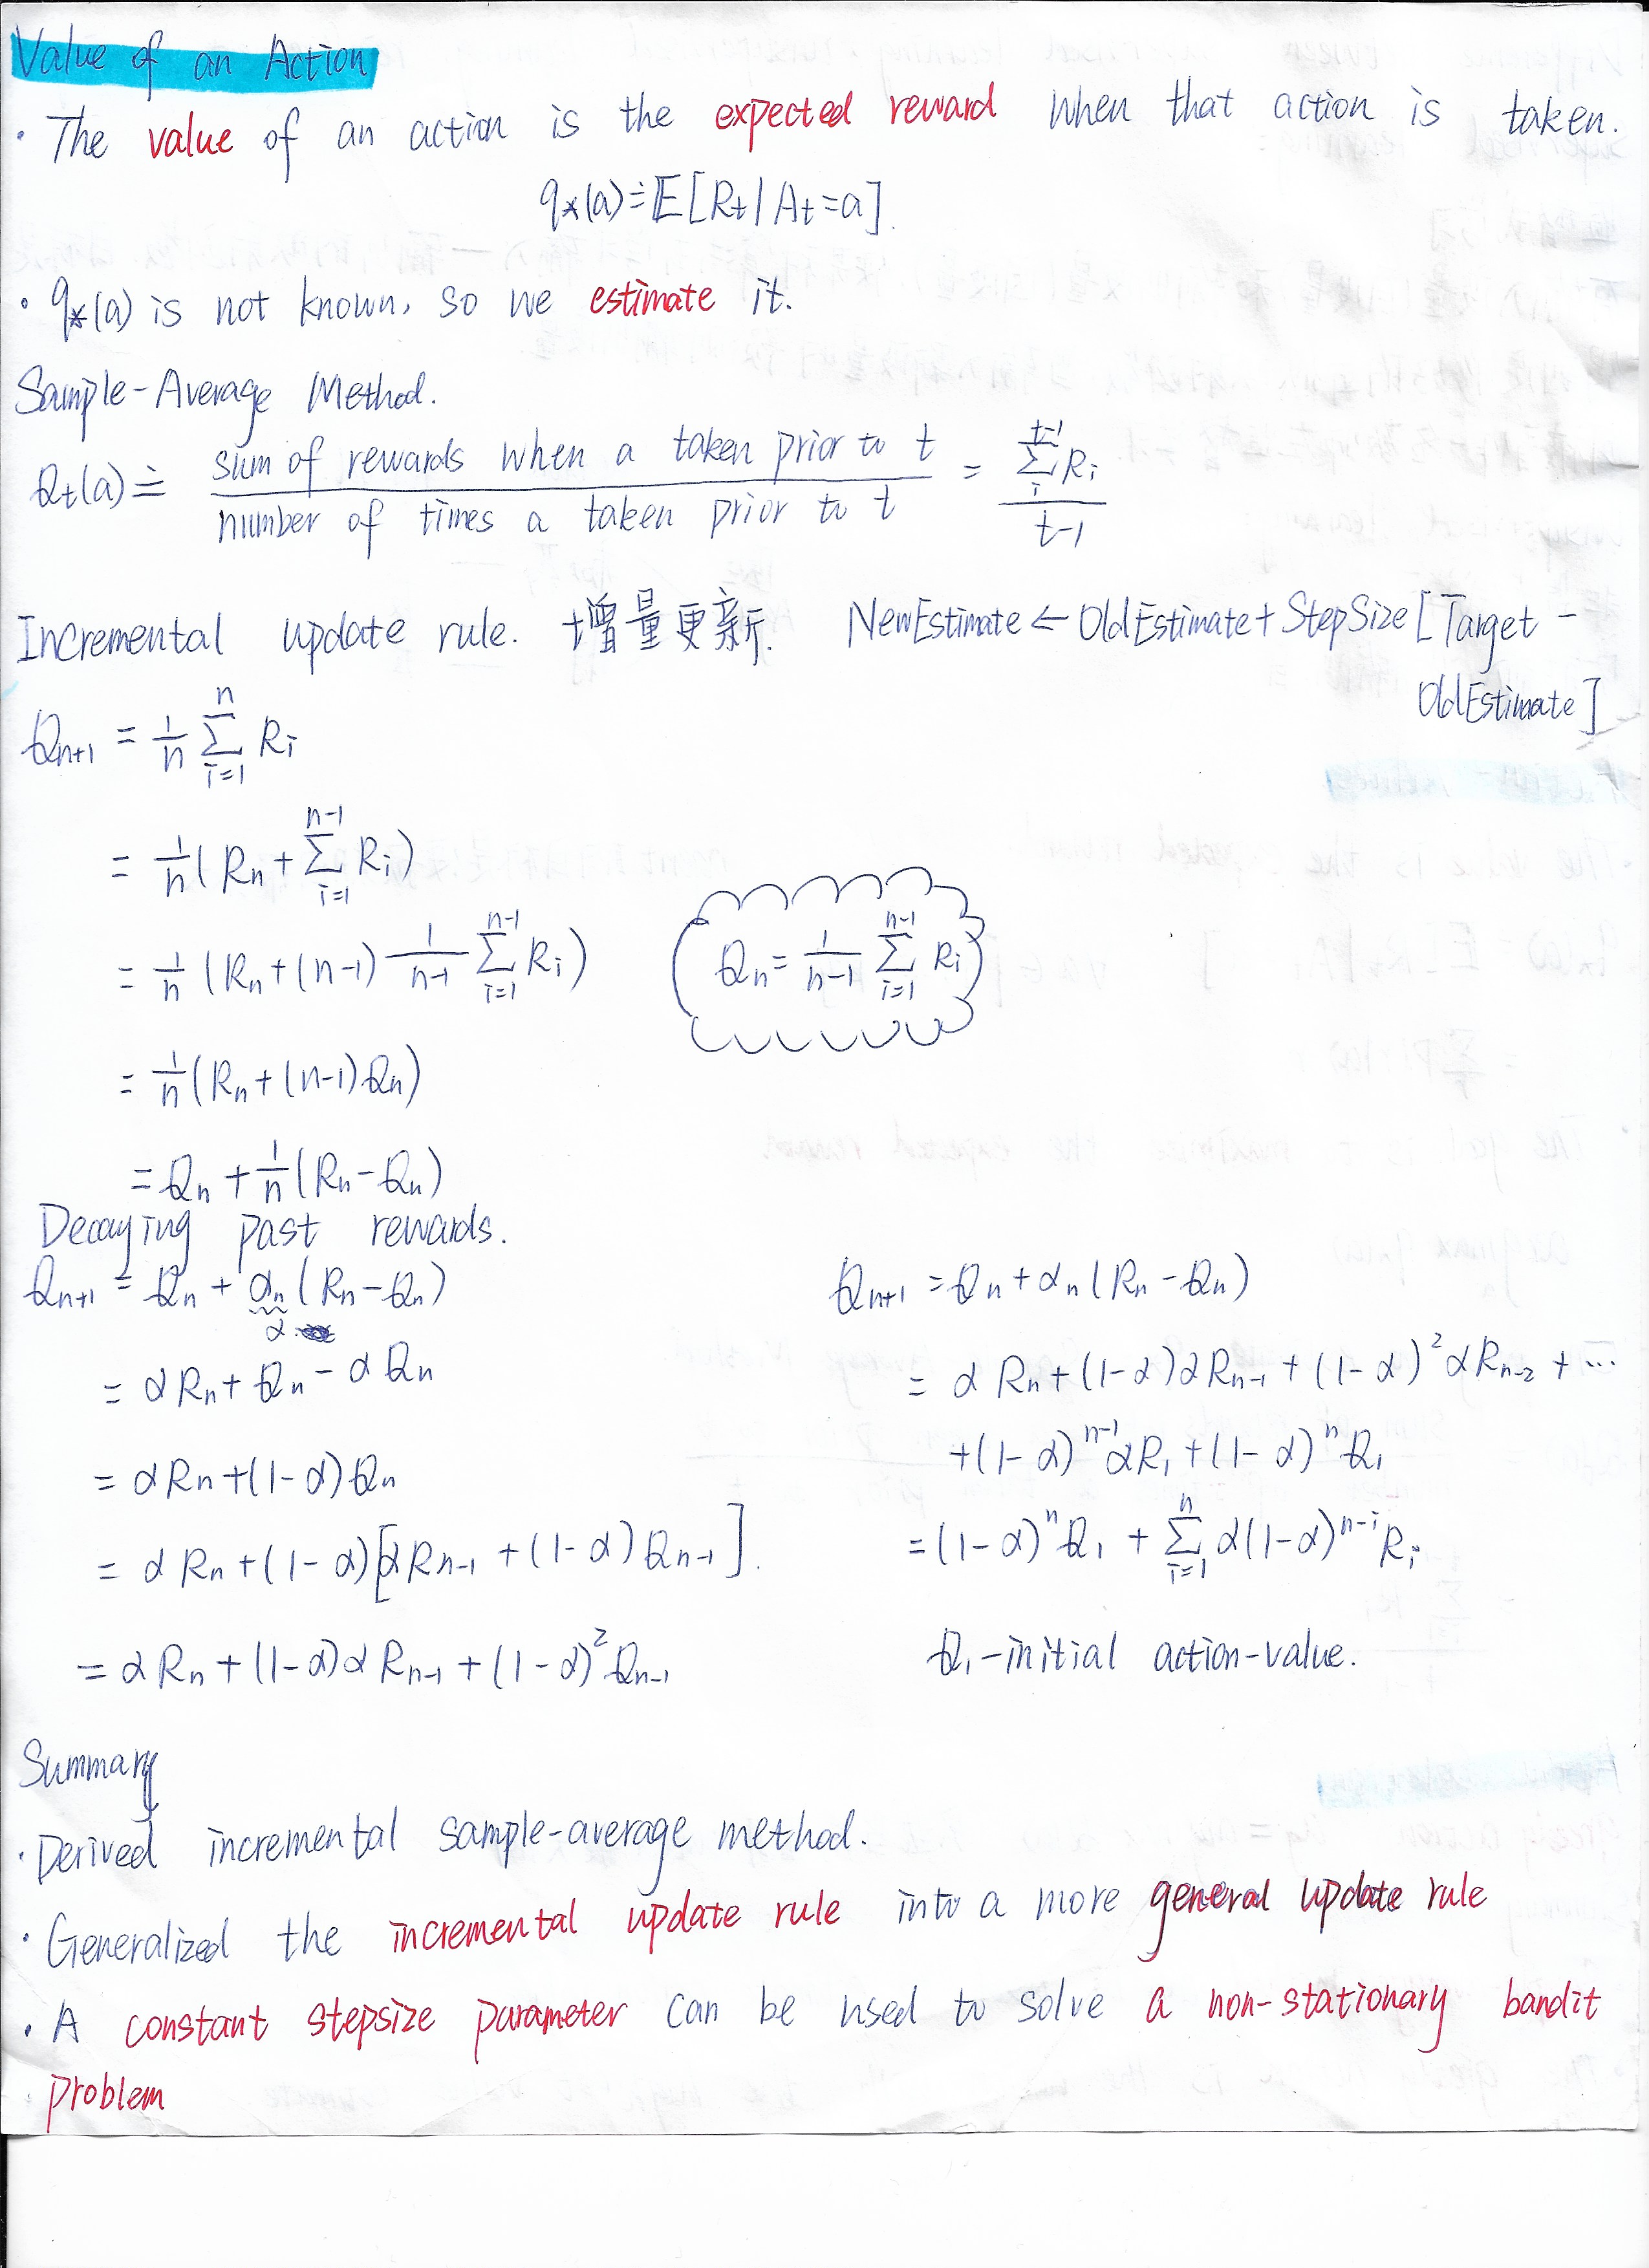 Value of an Action
· The value of an action is the expected reward when that action is taken.
q*(a) ≐ 𝔼[Rt | At = a].
· q*(a) is not known, so we estimate it.
Sample-Average Method.
Qt(a) ≐ (sum of rewards when a taken prior to t) / (number of times a taken prior to t) = (Σ_i^{t-1} Ri) / (t-1)
Incremental update rule. 增量更新. NewEstimate ← OldEstimate + StepSize [Target -
OldEstimate]
Q_{n+1} = 1/n Σ_{i=1}^{n} Ri
= 1/n (Rn + Σ_{i=1}^{n-1} Ri)
= 1/n (Rn + (n-1) 1/(n-1) Σ_{i=1}^{n-1} Ri) (Qn = 1/(n-1) Σ_{i=1}^{n-1} Ri)
= 1/n (Rn + (n-1)Qn)
= Qn + 1/n (Rn - Qn)
Decaying past rewards.
Q_{n+1} = Qn + αn (Rn - Qn)
α
= αRn + Qn - αQn
= αRn + (1-α)Qn
= αRn + (1-α)[αR_{n-1} + (1-α)Q_{n-1}].
= αRn + (1-α)αR_{n-1} + (1-α)²Q_{n-1}
Q_{n+1} = Qn + αn (Rn - Qn)
= αRn + (1-α)αR_{n-1} + (1-α)²αR_{n-2} + ...
+ (1-α)^{n-1}αR1 + (1-α)^n Q1
= (1-α)^n Q1 + Σ_{i=1}^{n} α(1-α)^{n-i} Ri
Q1 - initial action-value.
Summary
· Derived incremental sample-average method.
· Generalized the incremental update rule into a more general update rule
· A constant stepsize parameter can be used to solve a non-stationary bandit
· problem